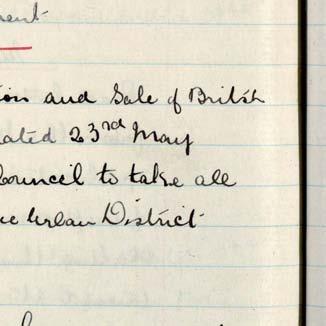 ent
ion and Sale of British
ated 23rd May
Council to take all
Urban District